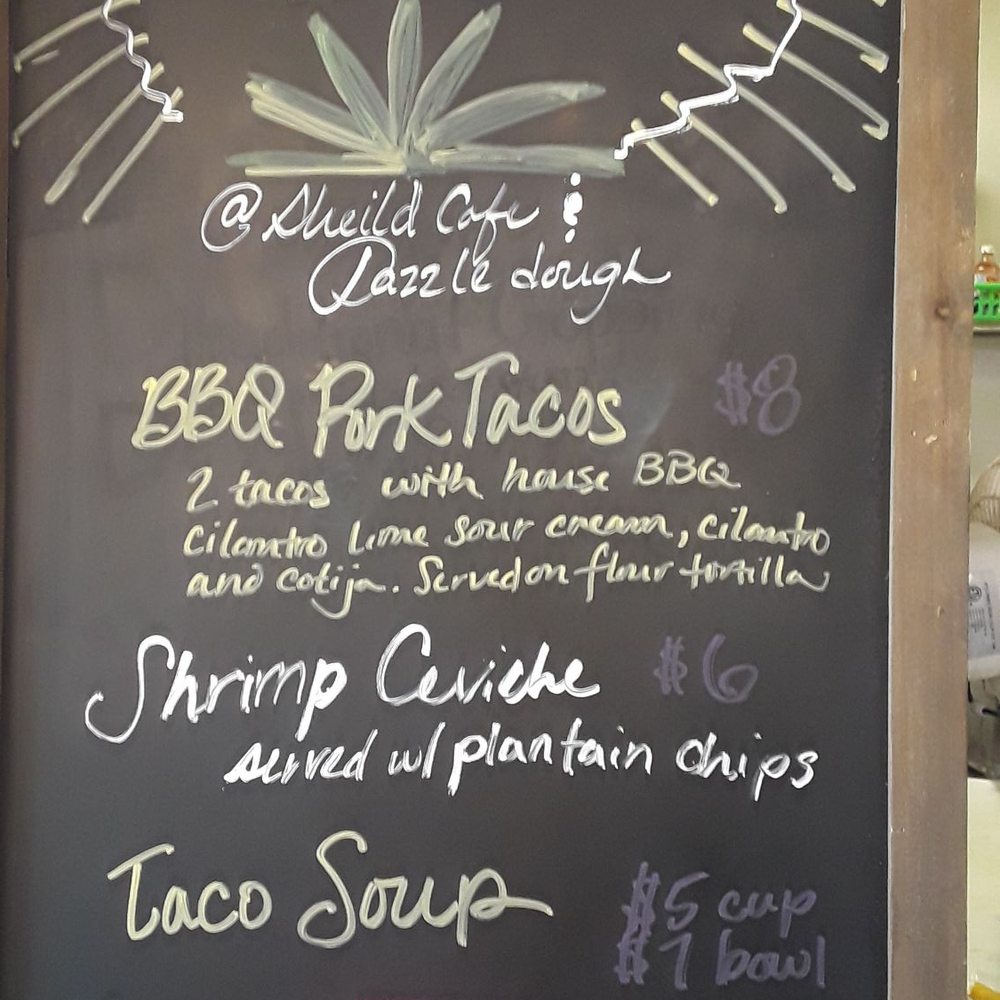 @ Sheild Cafe &
Dazzle dough
BBQ Pork Tacos $8
2 tacos with house BBQ
cilantro lime sour cream, cilantro
and cotija. Served on flour tortilla
Shrimp Ceviche $6
served w/ plantain chips
Taco Soup $5 cup
$7 bowl